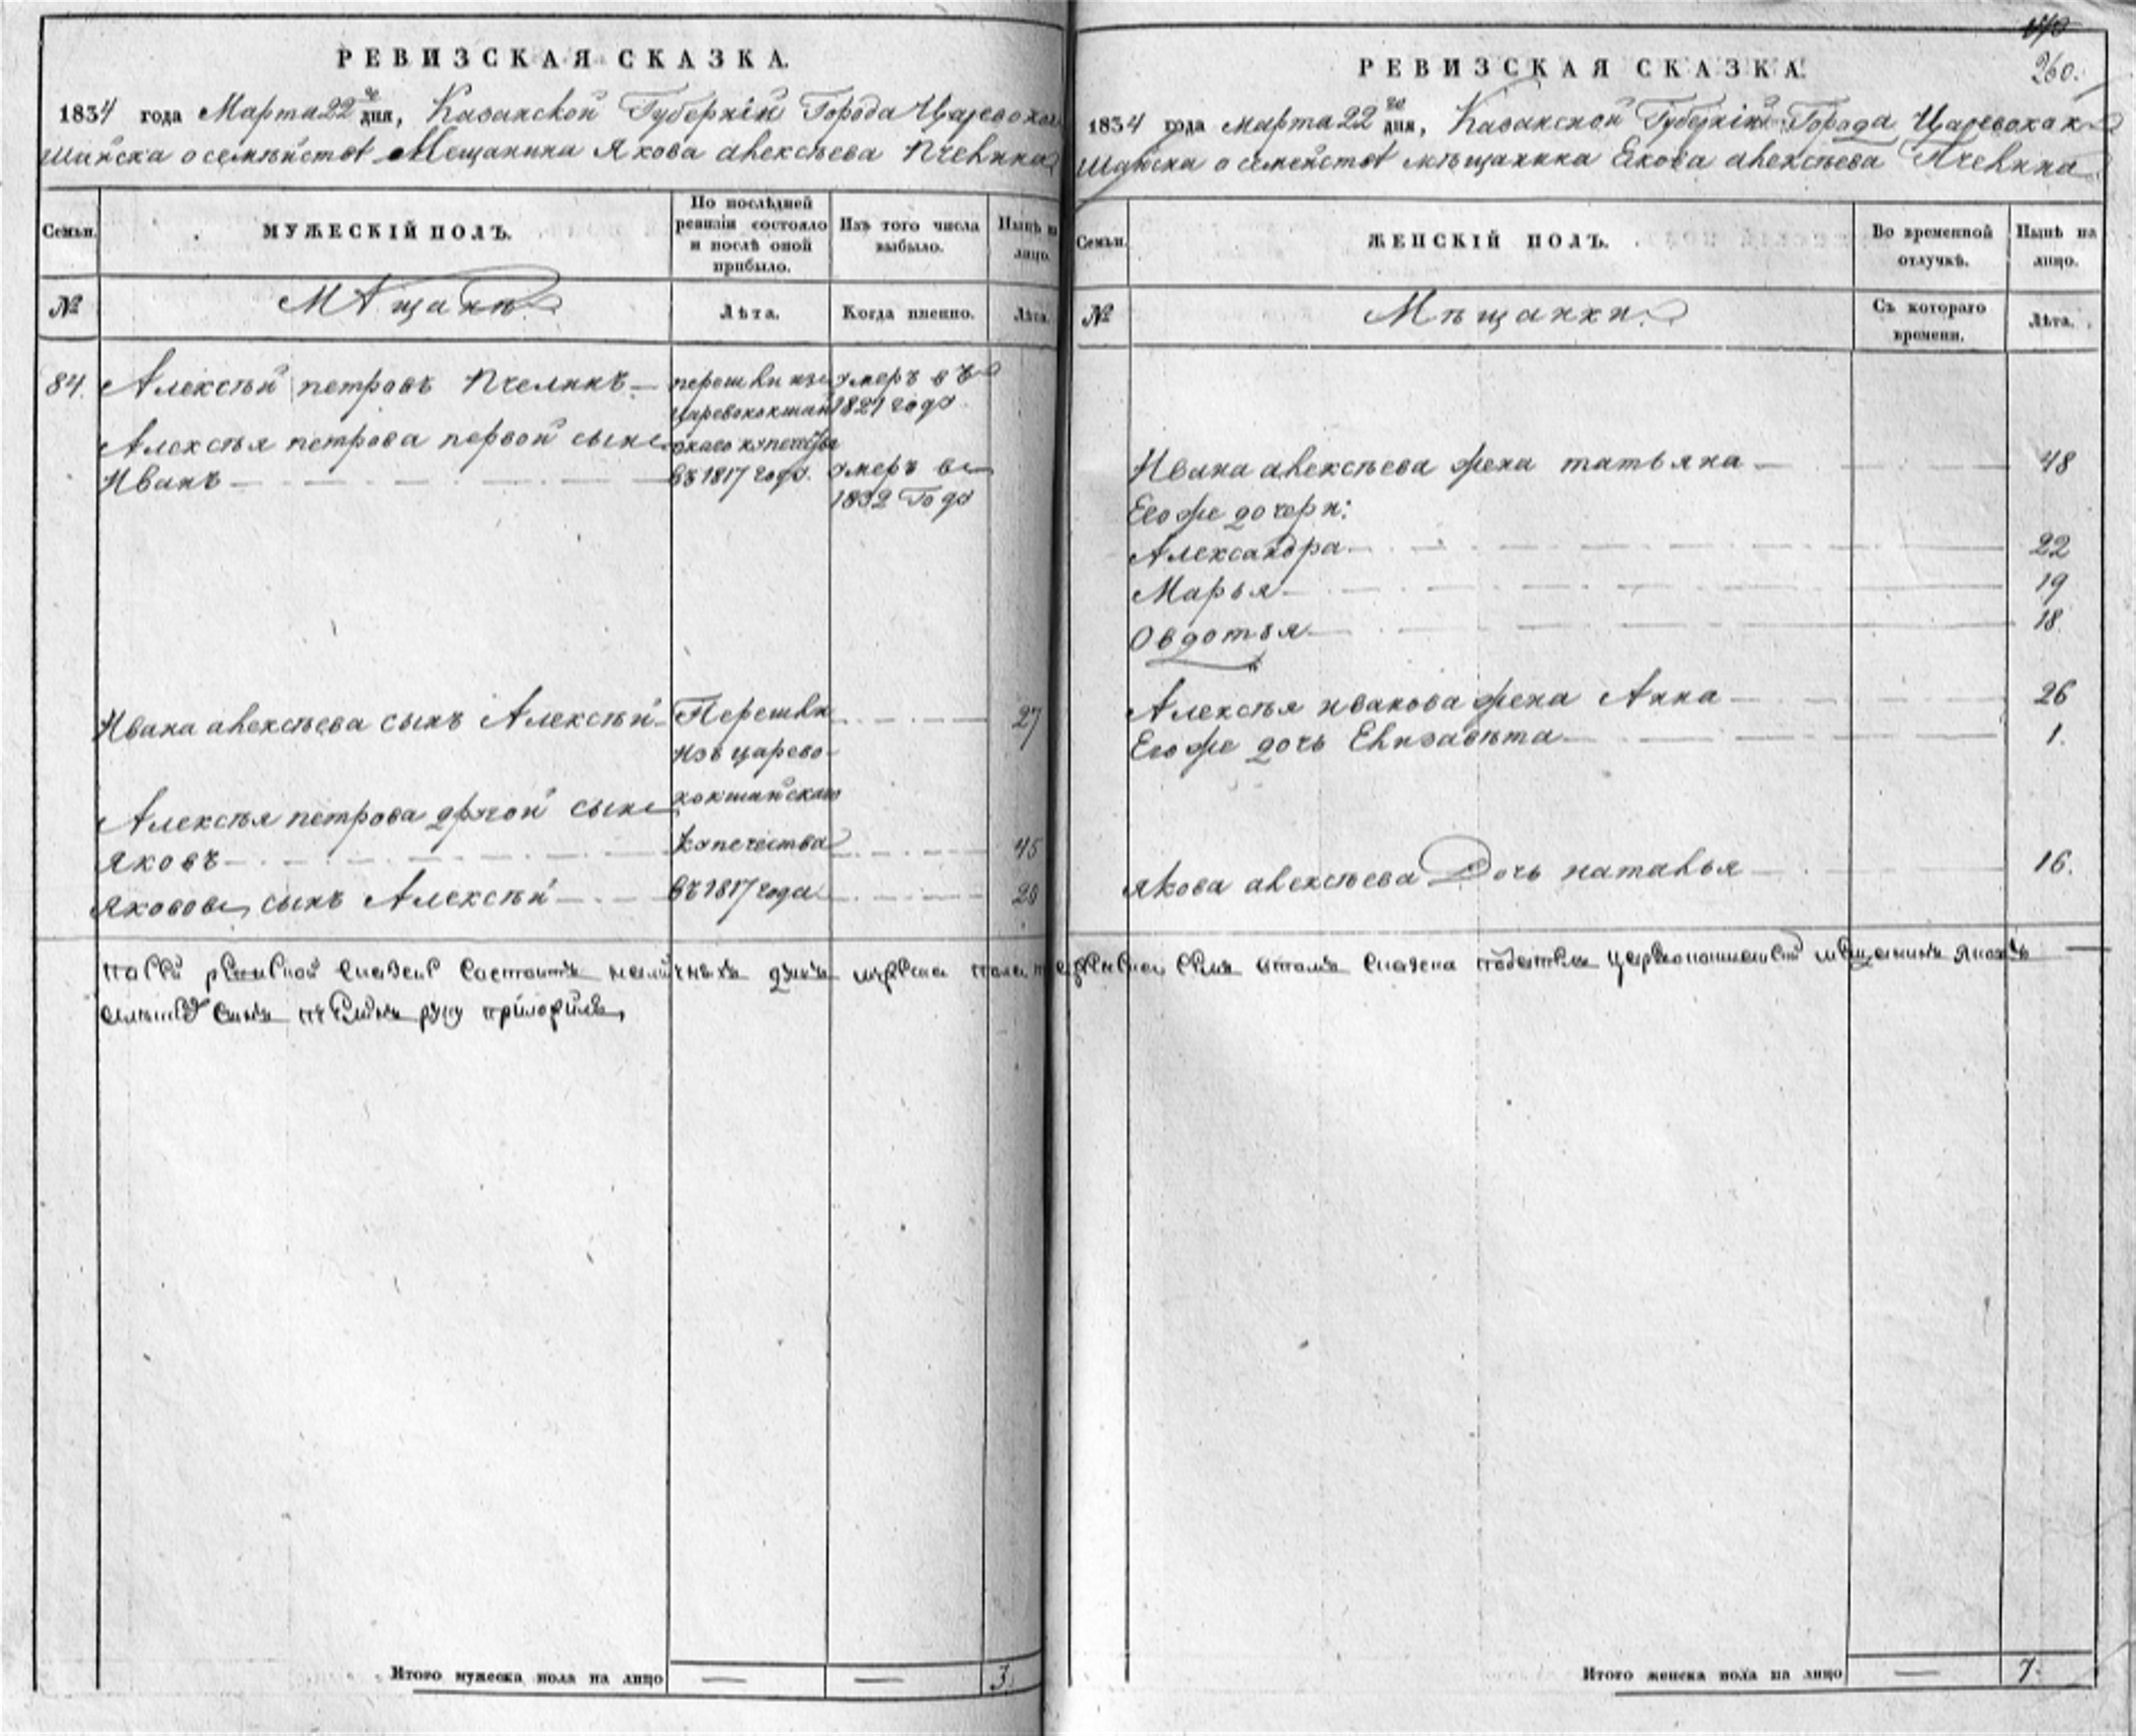 РЕВИЗСКАЯ СКАЗКА.
1834 года Марта 22 го дня, Казанской Губернiи Города Царевокок
шайска о семѣйствѣ Мещанина Якова алексѣева Пчелина
Семьи.
МУЖЕСКIЙ ПОЛЪ.
По послѣдней ревизiи состояло и послѣ оной прибыло.
Изъ того числа выбыло.
Нынѣ на лицо.
№
Мѣщанѣ
Лѣта.
Когда именно.
Лѣта.
84. Алексѣй петровъ Пчелинъ
перешли изъ
царевококшай
скаго купечества
въ 1817 годо.
умеръ въ
1821 годо
Алексѣя петрова первой сынъ
Иванъ
умеръ въ
1832 Годо
Ивана алексѣева сынъ Алексѣй 27
Перешли
изъ царево-
кокшайскаго
купечества
въ 1817 года
Алексѣя петрова другой сынъ
яковъ 45
яковове сынъ Алексѣй
состоитъ
Итого мужеска пола на лицо — — 3.
260.
РЕВИЗСКАЯ СКАЗКА.
1834 года марта 22 го дня, Казанской Губернiи Города Царевокок
шайска о семействѣ мѣщанина Екова алексѣева Пчелина
Семьи.
ЖЕНСКIЙ ПОЛЪ.
Во временной отлучкѣ.
Нынѣ на лицо.
№
Мѣщанки.
Съ котораго времени.
Лѣта.
Ивана алексѣева жена татьяна 48
Его же дочери:
Александра 22
Марья 19
Овдотья 18
Алексѣя иванова жена Анна 26
Его же дочь Елизавѣта 1.
якова алексѣева Дочь наталья 16.
Итого женска пола на лицо — 7.